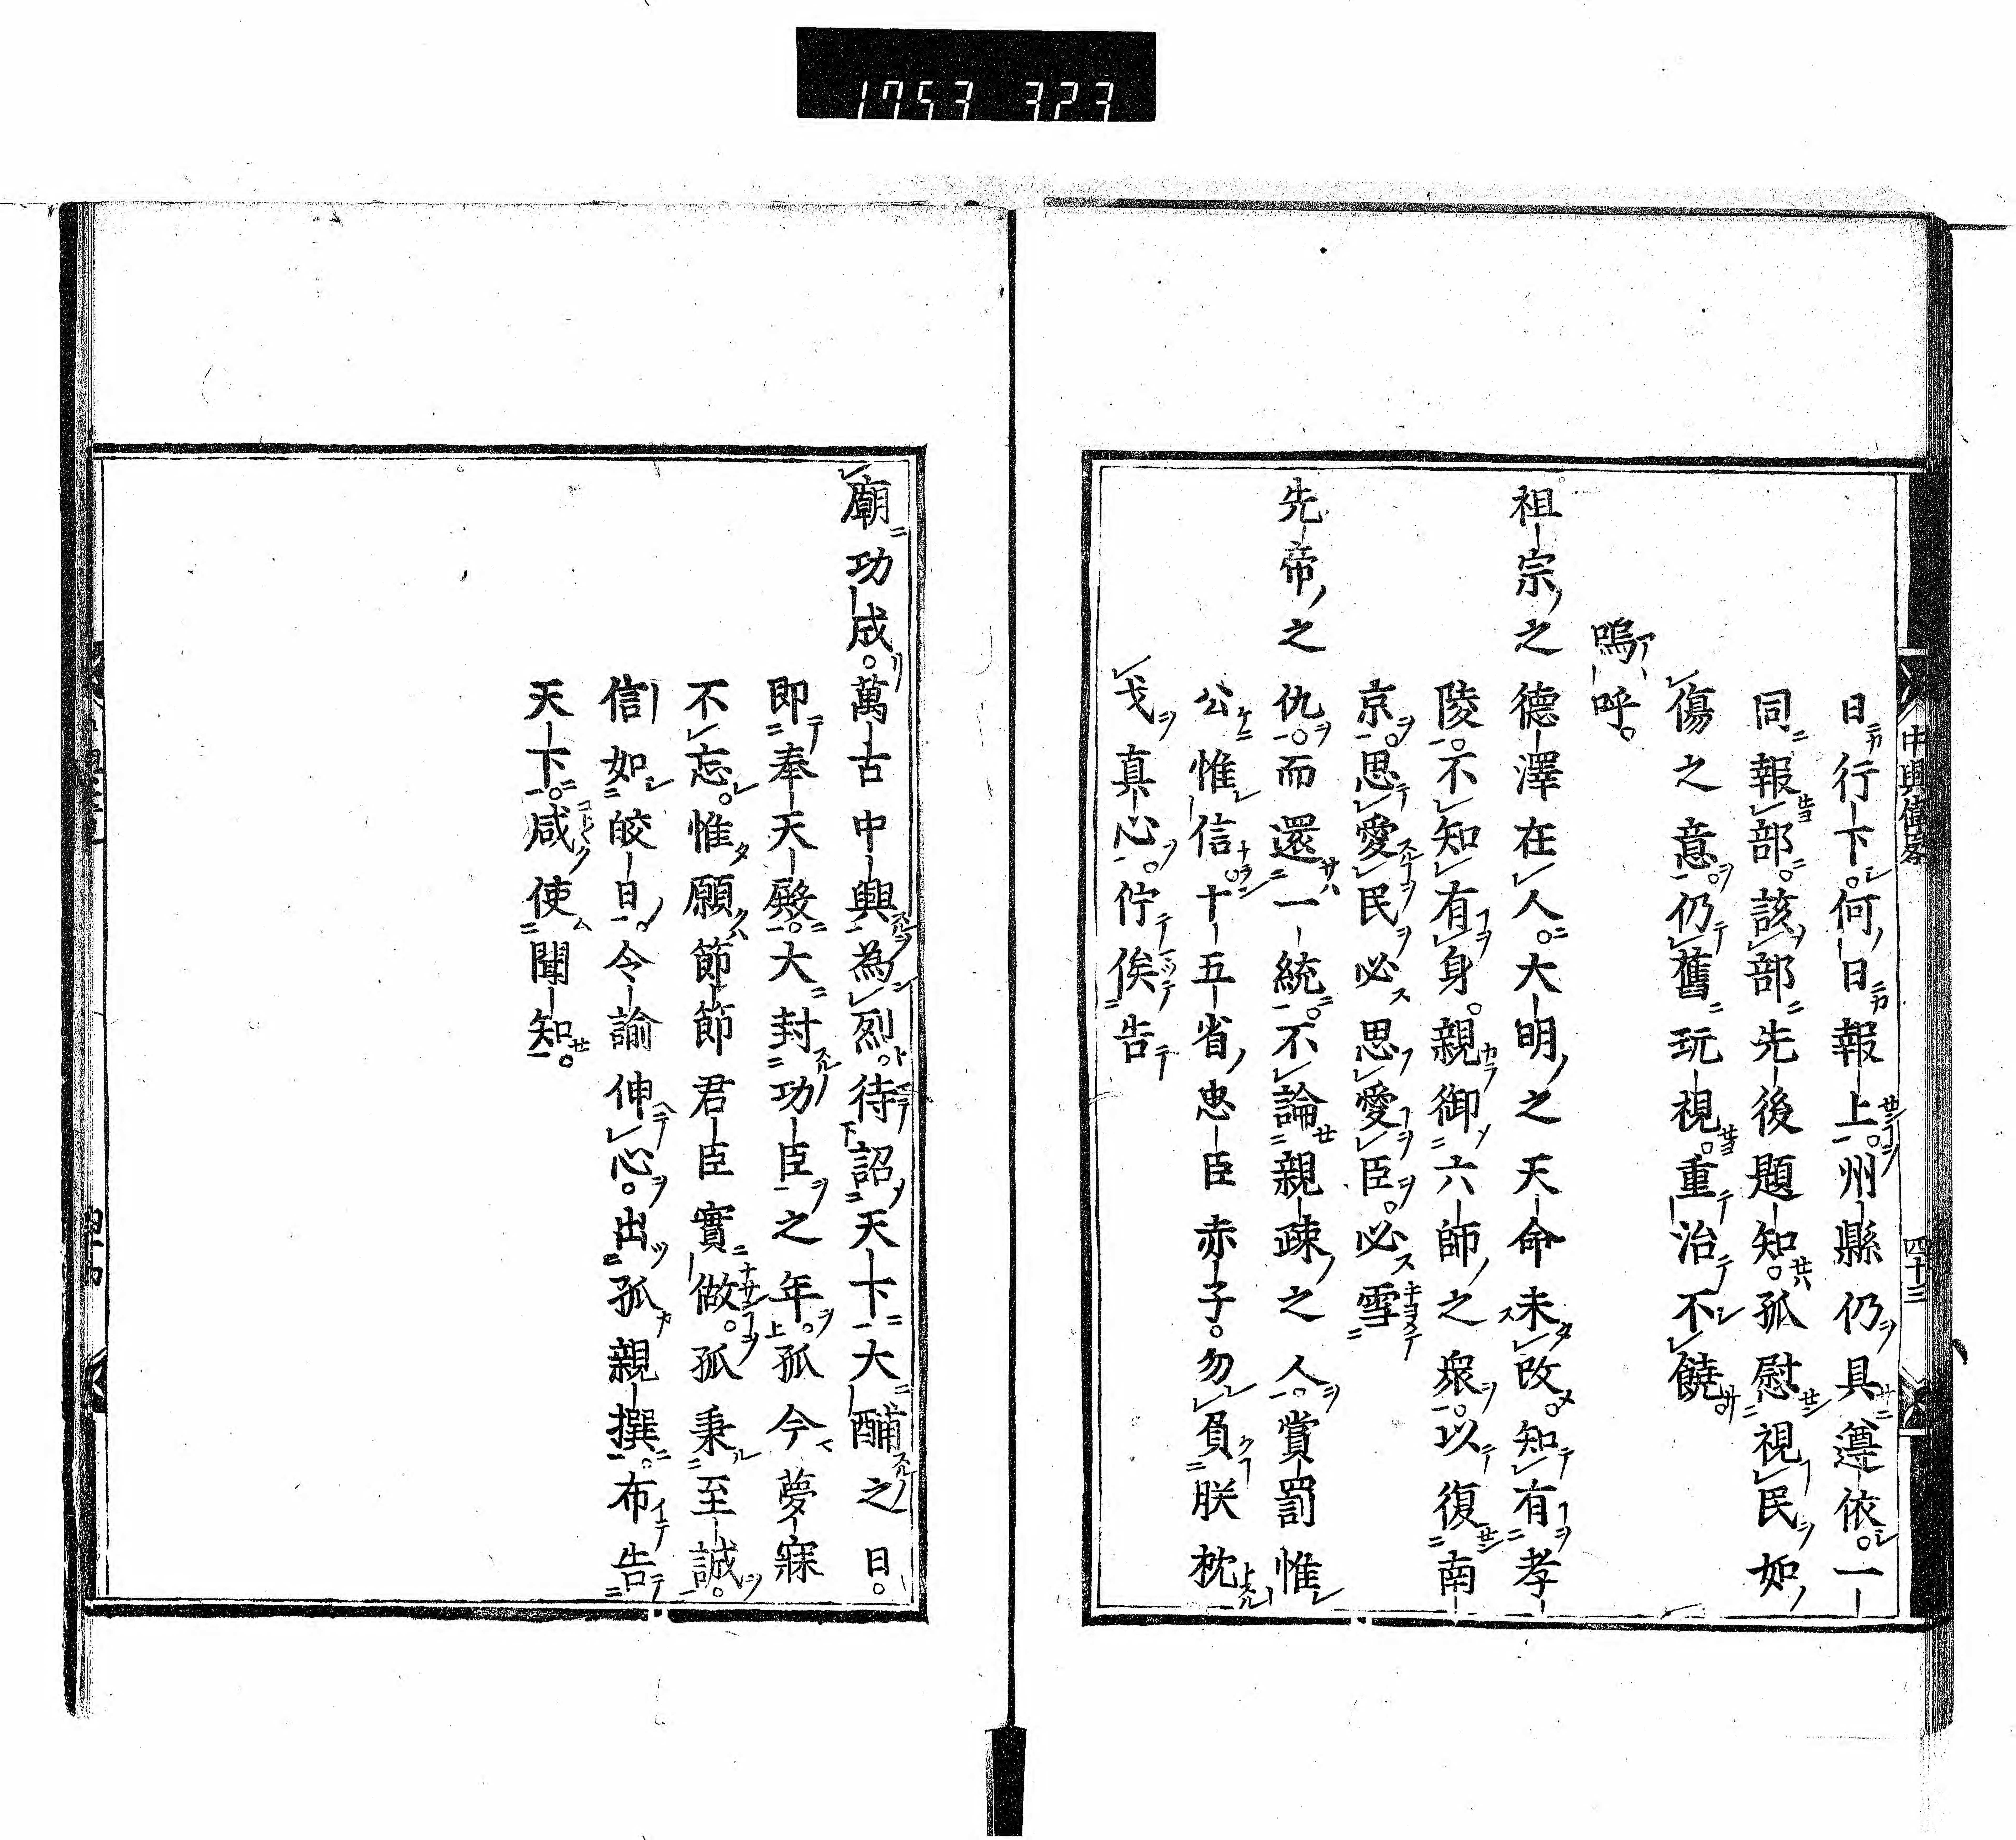 1753 323
中興偉畧
四十三
日行下。何日報上。州縣仍具遵依。一
同報部。該部先後題知。孤慰視民如
傷之意。仍舊玩視。重治不饒
嗚呼。
祖宗之德澤在人。大明之天命未改。知有孝
陵。不知有身。親御六師之眾。以復南
京。思愛民必思愛臣。必雪
先帝之仇。而還一統。不論親疎之人。賞罰惟
公惟信。十五省忠臣赤子。勿負朕枕
戈真心。佇俟告
廟功成。萬古中興為烈。待詔天下大酺之日。
即奉天殿。大封功臣之年。孤今夢寐
不忘。惟願節節君臣實做。孤秉至誠。
信如皎日。令諭伸心。出孤親撰。布告
天下。咸使聞知。